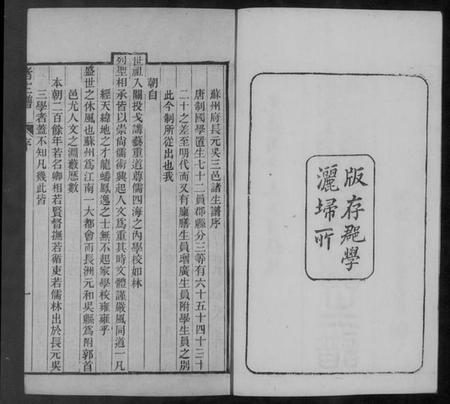 版存郡學
灑埽所
蘇州府長元吳三邑諸生譜序
唐制國學置生七十二員郡縣分三等有六十五十四十三十
二十之差至明代而又有廩膳生員增廣生員附學生員之別
此今制所從出也我
朝自
世祖入關投戈講藝重道尊儒四海之內學校如林
列聖相承皆以崇尚儒術興起人文爲重其時文體謹嚴風同道一凡
經天緯地之才龍蟠鳳逸之士無不起家學校雍雍乎
盛世之休風也蘇州爲江南一大都會而長洲元和吳縣爲附郭首
邑尤人文之淵藪歷數
本朝二百餘年若名卿相若賢督撫若循吏若儒林出於長元吳
三學者蓋不知凡幾此皆
諸生譜
序
一